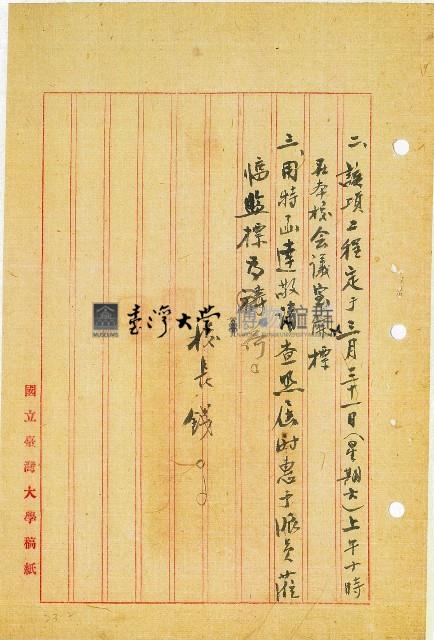 二、該項工程定于三月三十一日(星期六)上午十時
在本校会議室開標
三、用特函達敬請查照屆时惠予派員蒞
監標为禱荷。
校長錢○○
國立臺灣大學稿紙
臺灣大學 博物館群
MUSEUMS